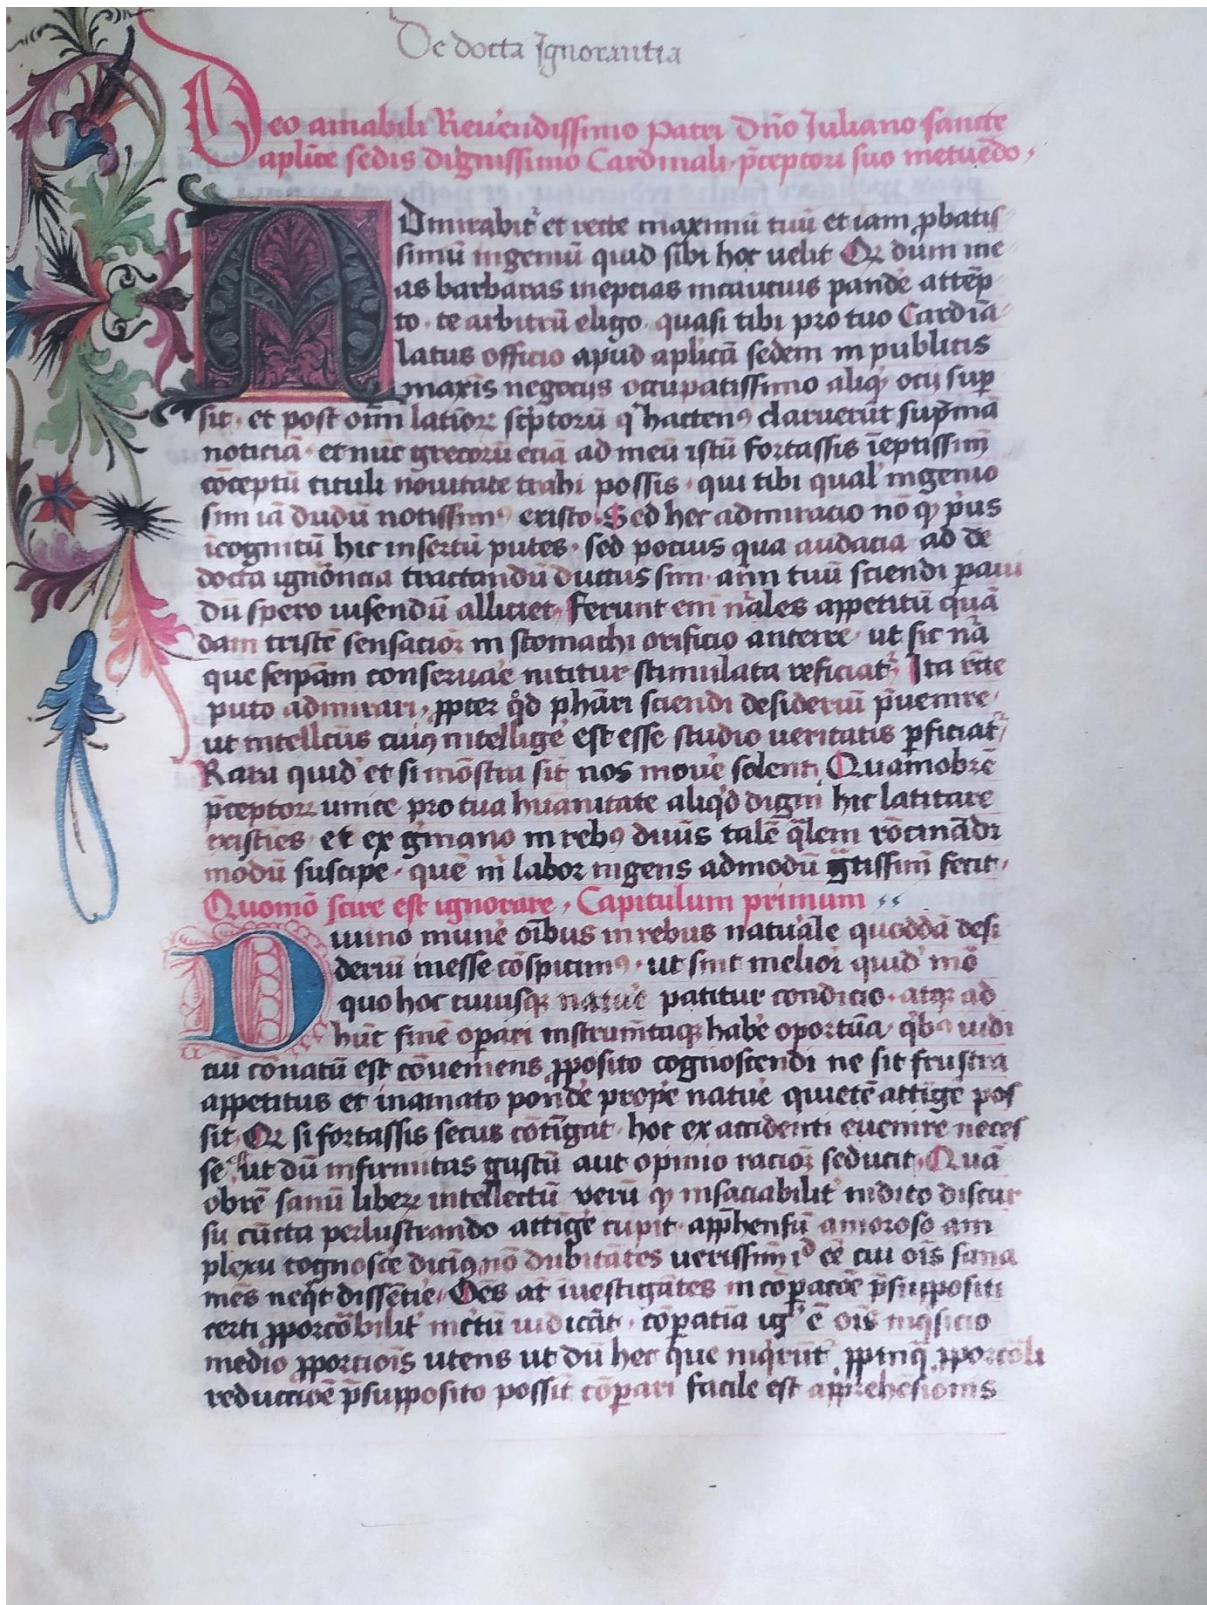 De docta Ignorantia
Deo amabili Reuēendissimo Patri Dño Iuliano sancte
aplice sedis dignissimo Cardinali p̄ceptori suo metuēdo
ADmirabit᷑ et recte maximū tuū et iam ꝓbatis
simū ingeniū quid sibi hoc uelit Qꝛ dum me
as barbaras ineptias incautius pande᷑ attēp
to · te arbitrū eligo · quasi tibi pro tuo Cardīa
latus officio apud aplicā sedem in publicis
maxīs negociis occupatissimo aliqͥ ocij suꝑ
sit · et post oīm latīoꝝ sc̄ptorū qͥ hacten⁹ claruerūt sup̄mā
noticiā · et nūc grecorū eciā ad meū istū fortassis īeptissimī
cōceptū tituli nouitate trahi possis · qui tibi qual' ingenio
sim iā dudū notissim⁹ existo · Sed hec admiracio nō qͩ p'us
īcognitū hic insertū putes · sed pocius qua audacia ad de
docta ignōncia tractandū ductus sim · aīm tuū sciendi ꝑaui
dū spero uisendū alliciet · Ferunt enī nāles appetitū quā
dam tristē sensacioꝫ in stomachi orificio anteire · ut sic nā
que seip̄am conseruae᷑ nititur stimulata reficiat᷑ Ita rc̄te
puto admirari, ꝓpter qͦd ph̄ari sciendi desideriū p̄uenire,
ut intellcūs cuiꝰ intellige᷑ est esse studio ueritatis ꝑficiat᷑
Rara quid' et si mōstra sīt nos moue᷑ solent · Quamobrē
p̄ceptoꝝ unice pro tua huānitate aliqͩ digni hic latitare
existies · et ex g̓mano in reb⁹ diuīs talē q̄lem rōcinādi
modū suscipe · quē m̄ labor ingens admodū gͣtissimū fecit ·
Quomō scire est ignorare, Capitulum primum
Diuino mune᷑ oībus in rebus natuāle quoddā desi
deriū inesse cōspicim⁹ · ut sint meliori quid' mō
quo hoc cuiusqꝫ natue᷑ patitur condicio · atqꝫ ad
hūc finē opari instrumētaqꝫ habe᷑ oportūa · qͥb⁹ iudi
ciū cōnatū est cōueniens ꝓposito cognoscendi ne sit frustra
appetitus et in amato ponde᷑ prop̄e natue᷑ quietē attige᷑ pos
sit · Qꝛ si fortassis secus cōtīgat · hoc ex accidenti euenire neces
se ē · ut dū infirmitas gustū aut opinio racioꝫ seducit · Quā
obrē sanū liberꝫ intellectū verū qͩ insaciabilit᷑ indito discur
su cūcta perlustrando attige᷑ cupit · app̄hensū amoroso am
plexu cognosce᷑ dicimꝰ nō dubitātes uerissimū iͩ eē cui oīs sana
mēs neqͥt dissētie᷑ · Oēs aūt īuestigātes in cōꝑacōe p̄suppositi
certi ꝓporcōbilit᷑ incʼtū iudicāt · cōꝑatīa igͥ ē oīs inqͥsicio
medio ꝓporciōis utens ut dū hec que inqͥrūt᷑ ꝓpinqͣ ꝓporcōli
reduccōe p̄supposito possīt cōꝑari facile est apprehēsionis